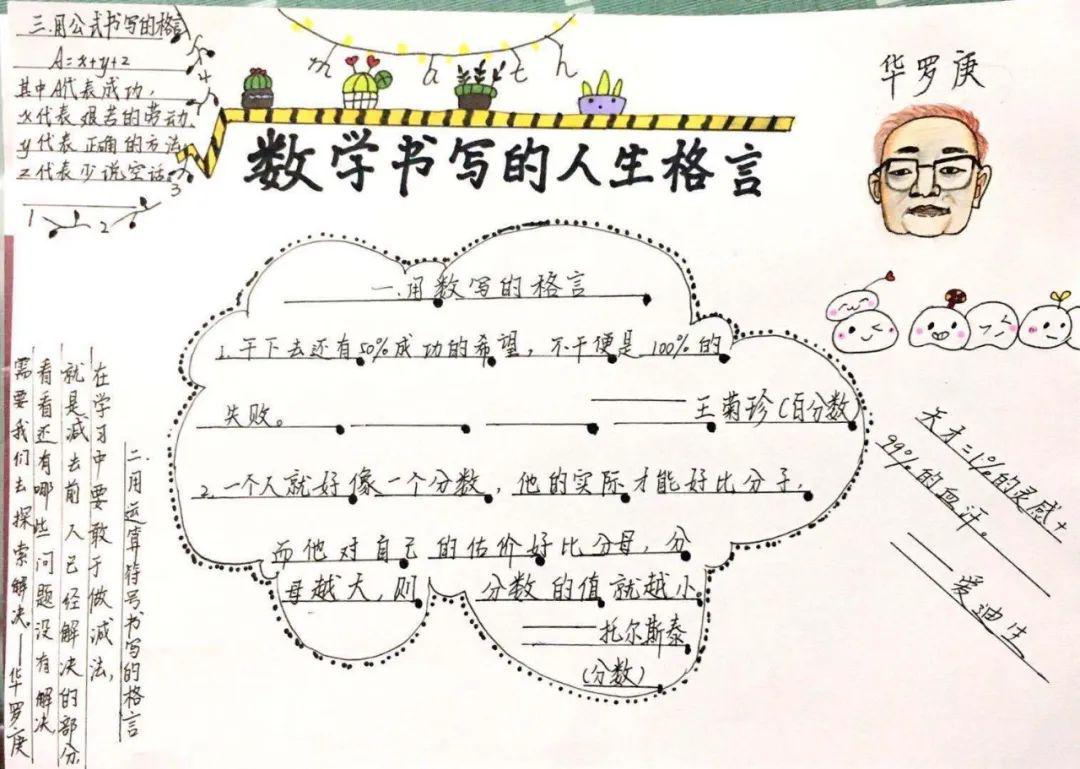 三.用公式书写的格言
A=x+y+z
其中A代表成功,
x代表艰苦的劳动,
y代表正确的方法
z代表少说空话。
1
2
3
4
math
数学书写的人生格言
华罗庚
一.用数写的格言
1.干下去还有50%成功的希望,不干便是100%的
失败。
——王菊珍(百分数)
2.一个人就好像一个分数,他的实际才能好比分子,
而他对自己的估价好比分母,分
母越大,则分数的值就越小。
——托尔斯泰
(分数)
二.用运算符号书写的格言
在学习中要敢于做减法,
就是减去前人已经解决的部分
看看还有哪些问题没有解决
需要我们去探索解决。——华罗庚
天才=1%的灵感+
99%的血汗。
——爱迪生